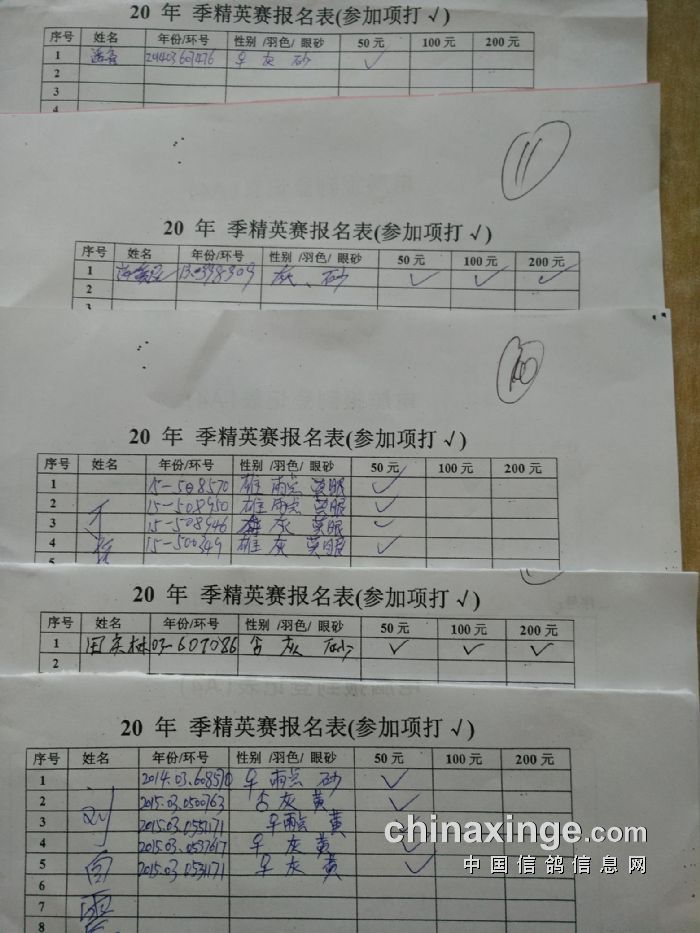 20 年 季精英赛报名表(参加项打 √)
序号 姓名 年份/环号 性别 /羽色/ 眼砂 50 元 100 元 200 元
1 灰 砂 ✓
2
3
4
11
20 年 季精英赛报名表(参加项打 √)
序号 姓名 年份/环号 性别 /羽色/ 眼砂 50 元 100 元 200 元
1 灰、砂 ✓ ✓ ✓
2
3
20 年 季精英赛报名表(参加项打 √)
序号 姓名 年份/环号 性别 /羽色/ 眼砂 50 元 100 元 200 元
1 15-508570 雄 雨点 黄眼 ✓
2 15-508950 雄 雨点 黄眼 ✓
3 15-508946 灰 黄眼 ✓
4 15-500349 雄 灰 黄眼 ✓
5
20 年 季精英赛报名表(参加项打 √)
序号 姓名 年份/环号 性别 /羽色/ 眼砂 50 元 100 元 200 元
1 03-607086 灰 砂 ✓ ✓ ✓
2
20 年 季精英赛报名表(参加项打 √)
序号 姓名 年份/环号 性别 /羽色/ 眼砂 50 元 100 元 200 元
1 2014.03.608570 雨点 砂 ✓
2 2015.03.0500763 灰 黄 ✓
3 2015.03.0551171 雨点 黄
4 2015.03.0537617 灰 黄 ✓
5 2015.03.0531171 灰 黄 ✓
6
7
8
刘
chinaxinge.com
中国信鸽信息网